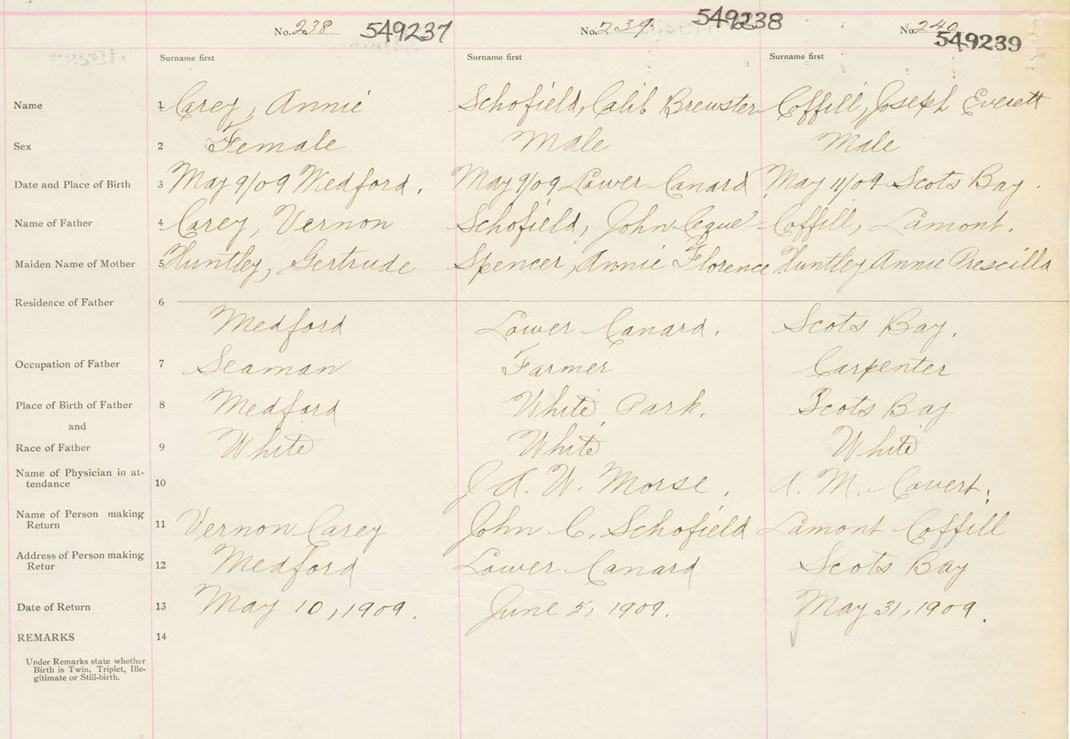 No. 238 549237 No. 239 549238 No. 240 549239
Surname first Surname first Surname first
Name 1 Carey, Annie Schofield, Calib Brewster Coffill, Joseph Everett
Sex 2 Female Male Male
Date and Place of Birth 3 May 9/09 Medford. May 9/09 Lower Canard May 11/09 Scots Bay.
Name of Father 4 Carey, Vernon Schofield, John Coffill, Lamont.
Maiden Name of Mother 5 Huntley, Gertrude Spencer, Annie Florence Huntley Annie Prescilla
Residence of Father 6 Medford Lower Canard. Scots Bay.
Occupation of Father 7 Seaman Farmer Carpenter
Place of Birth of Father 8 Medford White Park. Scots Bay
and
Race of Father 9 White White White
Name of Physician in at-
tendance 10 W. Morse. M. Covert.
Name of Person making
Return 11 Vernon Carey John C. Schofield Lamont Coffill
Address of Person making
Retur 12 Medford Lower Canard Scots Bay
Date of Return 13 May 10, 1909. June 5, 1909. May 31, 1909.
REMARKS 14
Under Remarks state whether
Birth is Twin, Triplet, Ille-
gitimate or Still-birth.